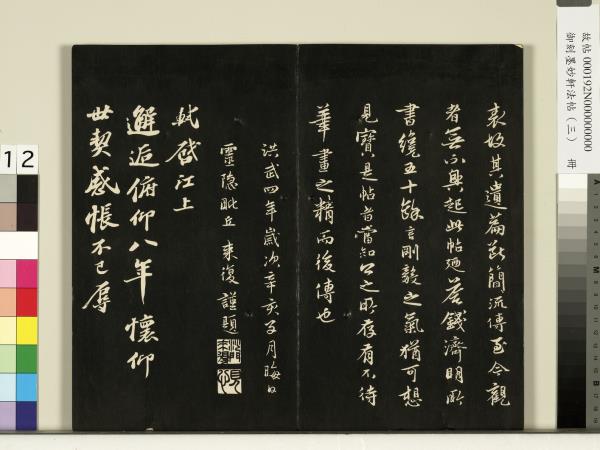 表好其遺篇斷簡流傳至今觀
者無不興起此帖廼答錢濟明所
書纔五十餘言剛毅之氣猶可想
見寶是帖者當知公之所存有不待
華畫之精而後傳也
洪武四年歲次辛亥子月晦日
靈隱毗丘來復謹題
軾啓江上
邂逅俯仰八年懷仰
世契感悵不已辱
故帖000192N000000000
御刻墨妙軒法帖(三) 冊
12